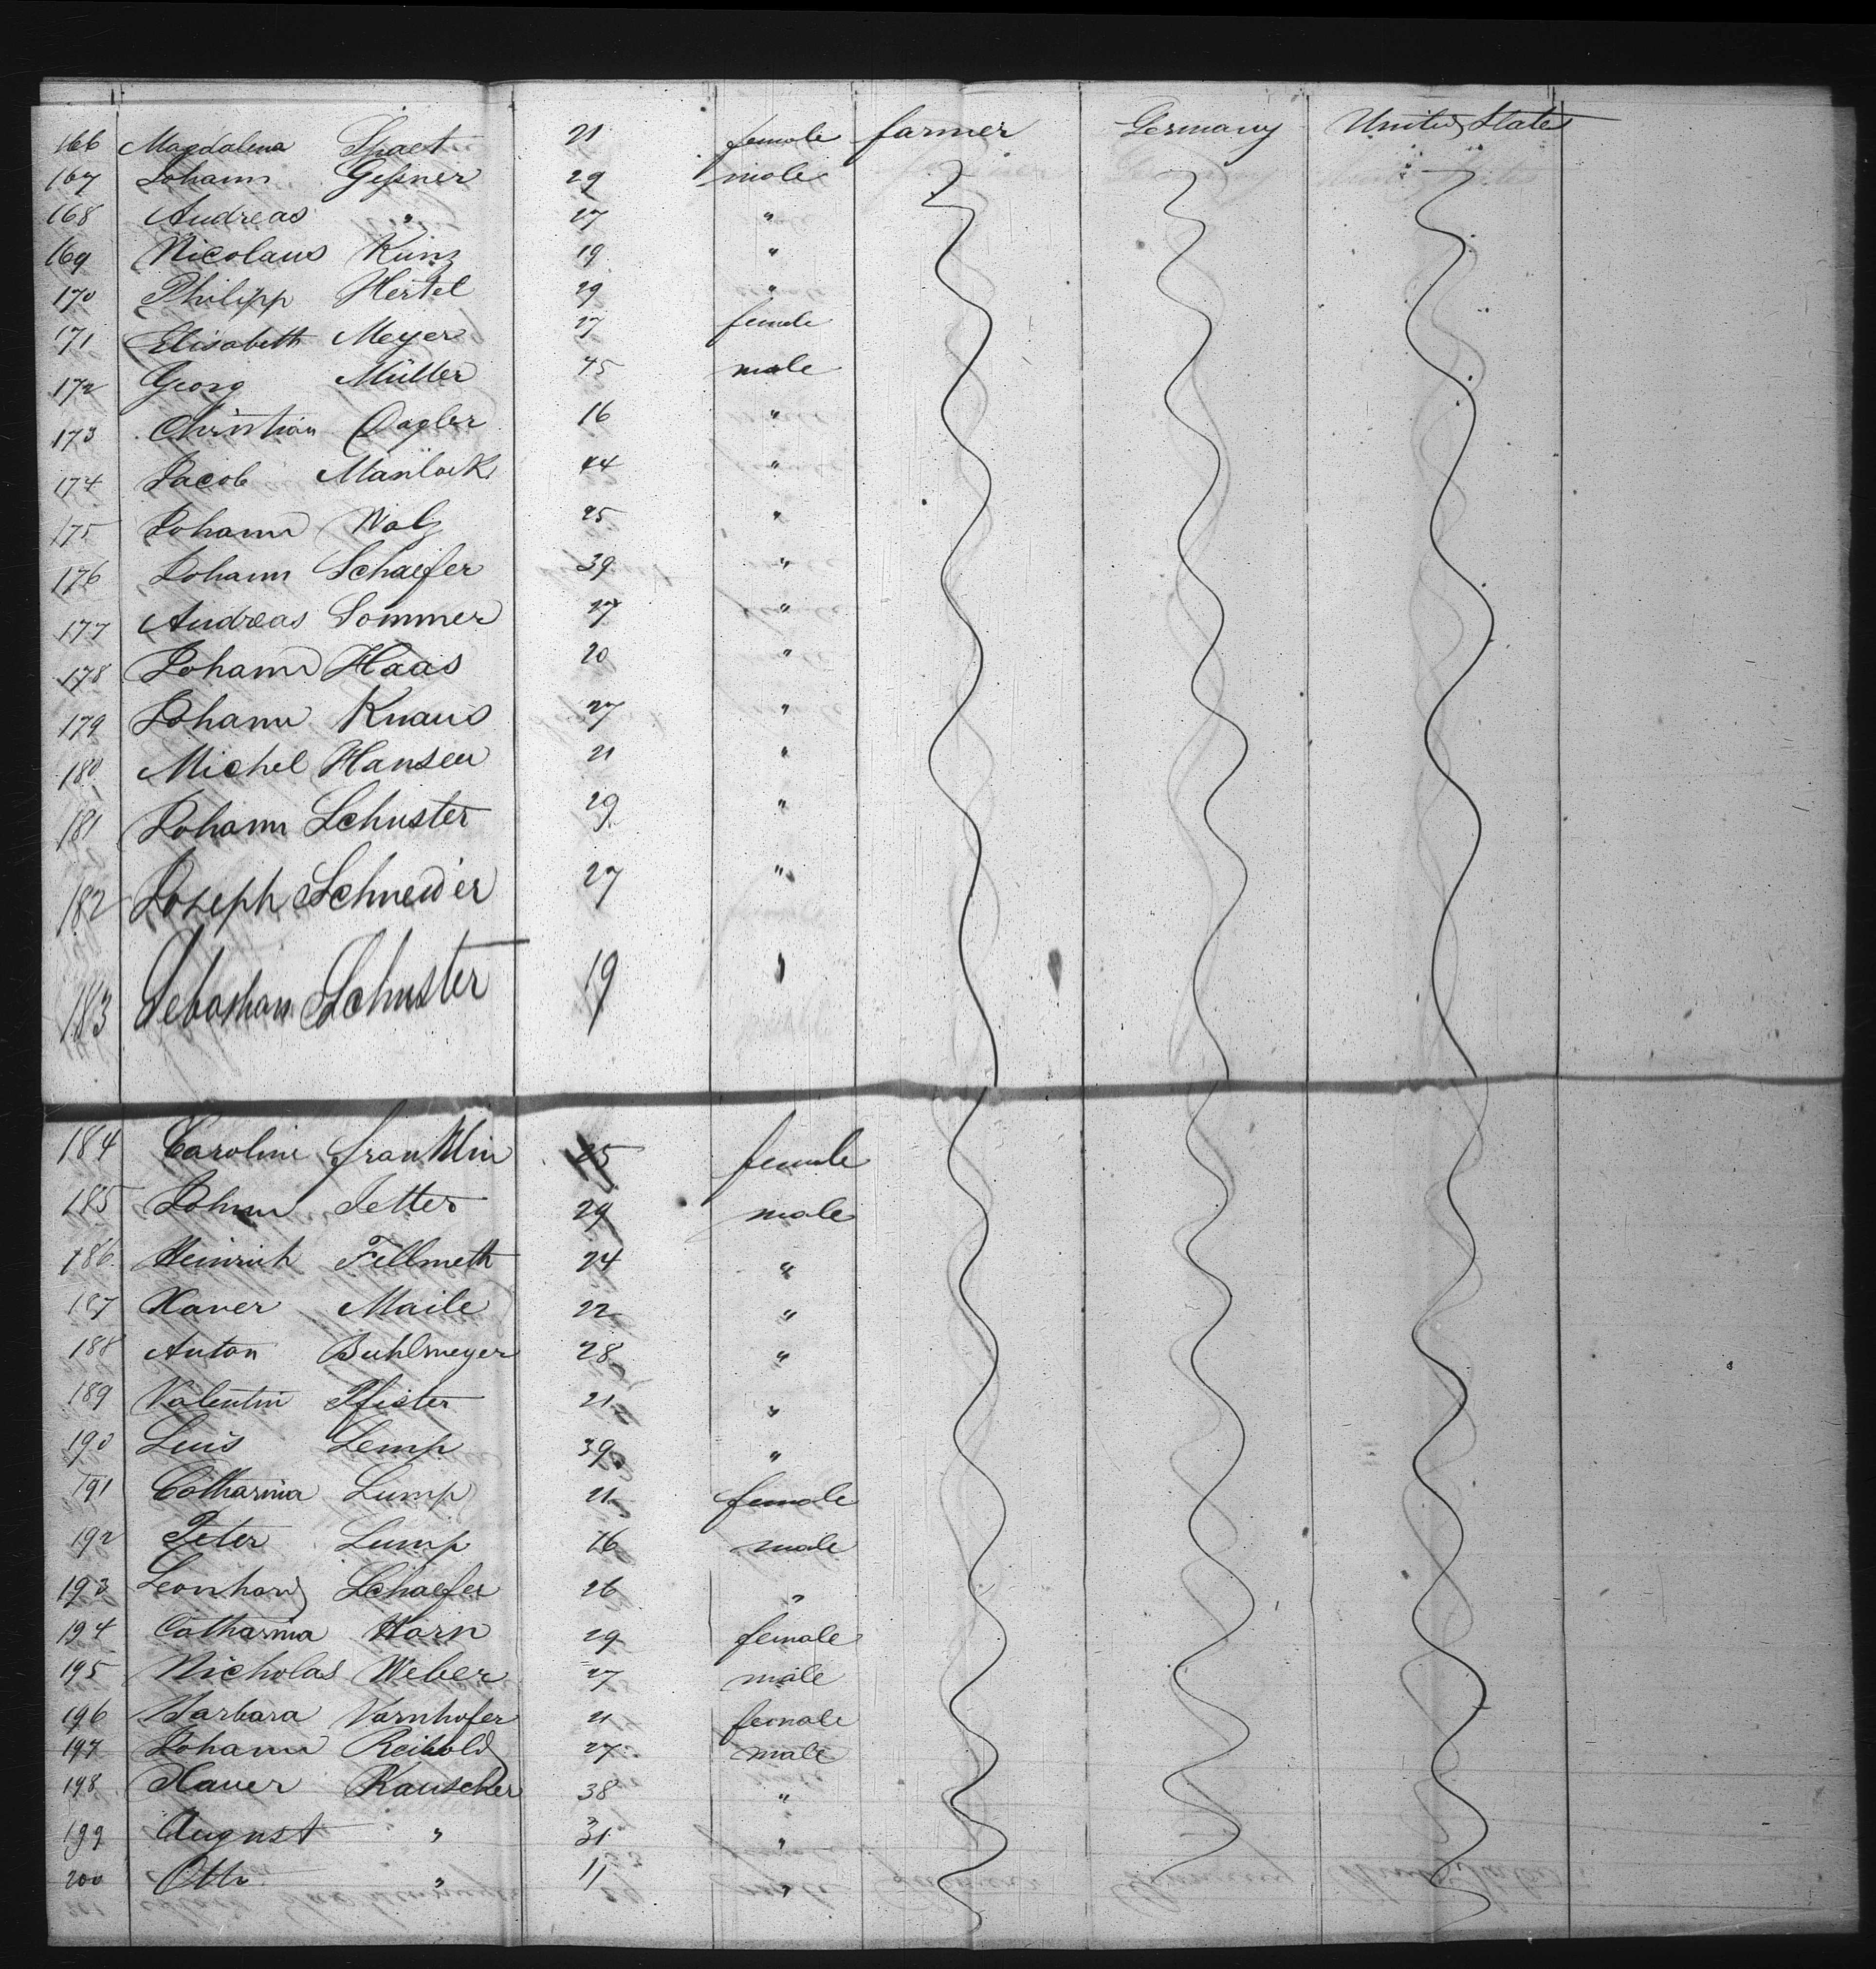 166 Magdalena Spaet 21 female farmer Germany United States
167 Johann Geßner 29 male
168 Andreas " 27 "
169 Nicolaus Kunz 19 "
170 Philipp Hertel 29 "
171 Elisabeth Meyer 27 female
172 Georg Müller 45 male
173 Christian Dagler 16 "
174 Jacob 44 "
175 Johann Walz 25 "
176 Johann Schaefer 39 "
177 Andreas Sommer 27 "
178 Johann Haas 20 "
179 Johann Knaus 27 "
180 Michel Hansen 21 "
181 Johann Schuster 29 "
182 Joseph Schneider 27 "
183 Sebastian Schuster 19 "
184 Caroline Franklin 25 female
185 Johann Jetter 29 male
186 Heinrich Fellmeth 24 "
187 Xaver Maile 22 "
188 Anton Buhlmeyer 28 "
189 Valentin Pfister 21 "
190 Luis Lemp 39 "
191 Catharina Lump 21 female
192 Peter Lump 16 male
193 Leonhard Schaefer 26 "
194 Catharina Horn 29 female
195 Nicholas Weber 27 male
196 Barbara Varnhofer 21 female
197 Johann Reibold 27 male
198 Xaver Rauscher 38 "
199 August " 31 "
200 Otto " 11 "